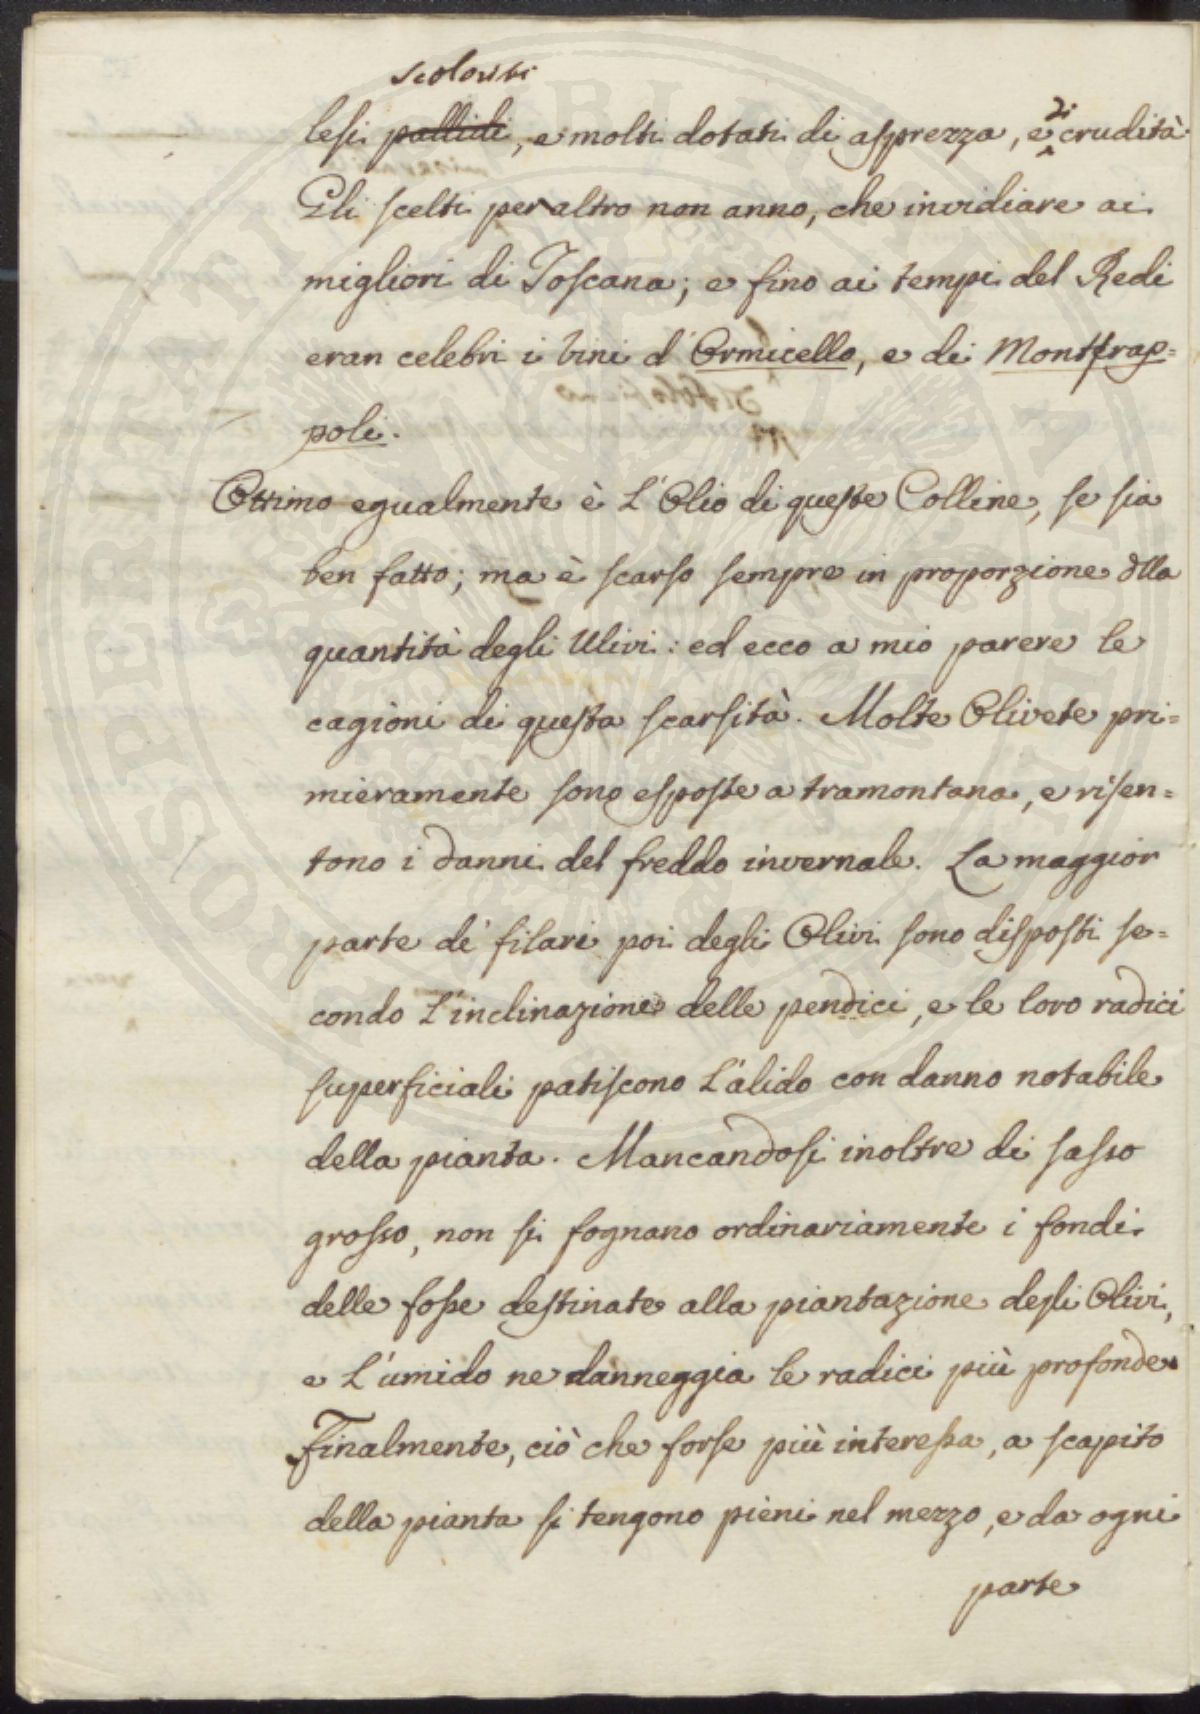 scoloriti
lesi pallidi, e molti dotati di asprezza, e di crudità
Gli scelti per altro non anno, che invidiare ai
migliori di Toscana; e fino ai tempi del Redi
eran celebri i Vini d'Ormicello, e di Montfrap=
poli.
Ottimo egualmente è L'Olio di queste Colline, se sia
ben fatto; ma è scarso sempre in proporzione dlla
quantità degli Ulivi: ed ecco a mio parere le
cagioni di questa scarsità. Molte Olivete pri=
mieramente sono esposte a tramontana, e risen=
tono i danni del freddo invernale. La maggior
parte de' filari poi degli Olivi sono disposti se=
condo L'inclinazione delle pendici, e le loro radici
superficiali patiscono L'alido con danno notabile
della pianta. Mancandosi inoltre di sasso
grosso, non si fognano ordinariamente i fondi
delle fosse destinate alla piantazione degli Olivi,
e L'umido ne danneggia le radici più profonde.
Finalmente, ciò che forse più interessa, a scapito
della pianta si tengono pieni nel mezzo, e da ogni
parte